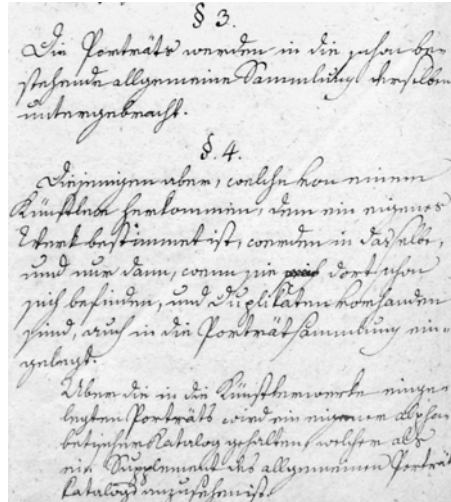 § 3.
Die Porträts werden in die schon be-
stehende allgemeine Sammlung derselben
untergebracht.
§. 4.
Diejenigen aber, welche von einem
Künstler herkommen, dem ein eigenes
Werk bestimmet ist, werden in dasselbe,
und nur dann, wenn sie dort schon
sich befinden, und Duplikaten vorhanden
sind, auch in die Porträtsammlung ein-
gelegt.
Über die in die Künstlerwerke einge-
legten Porträts wird ein eigener alpha-
betischer Katalog gehalten, welcher als
ein Supplement des allgemeinen Porträt
Katalogs anzusehen ist.